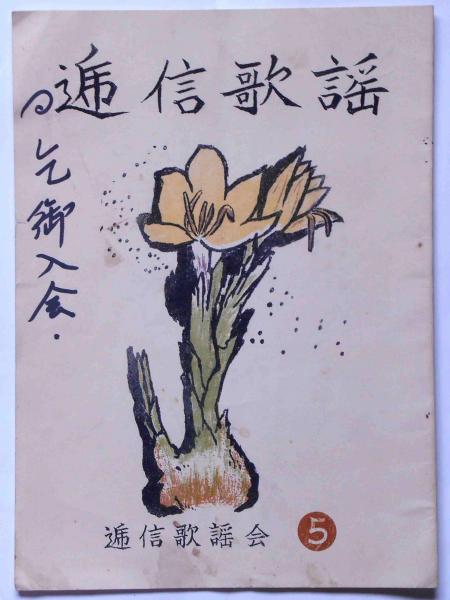 逓信歌謡
乞御入会.
逓信歌謡会 5